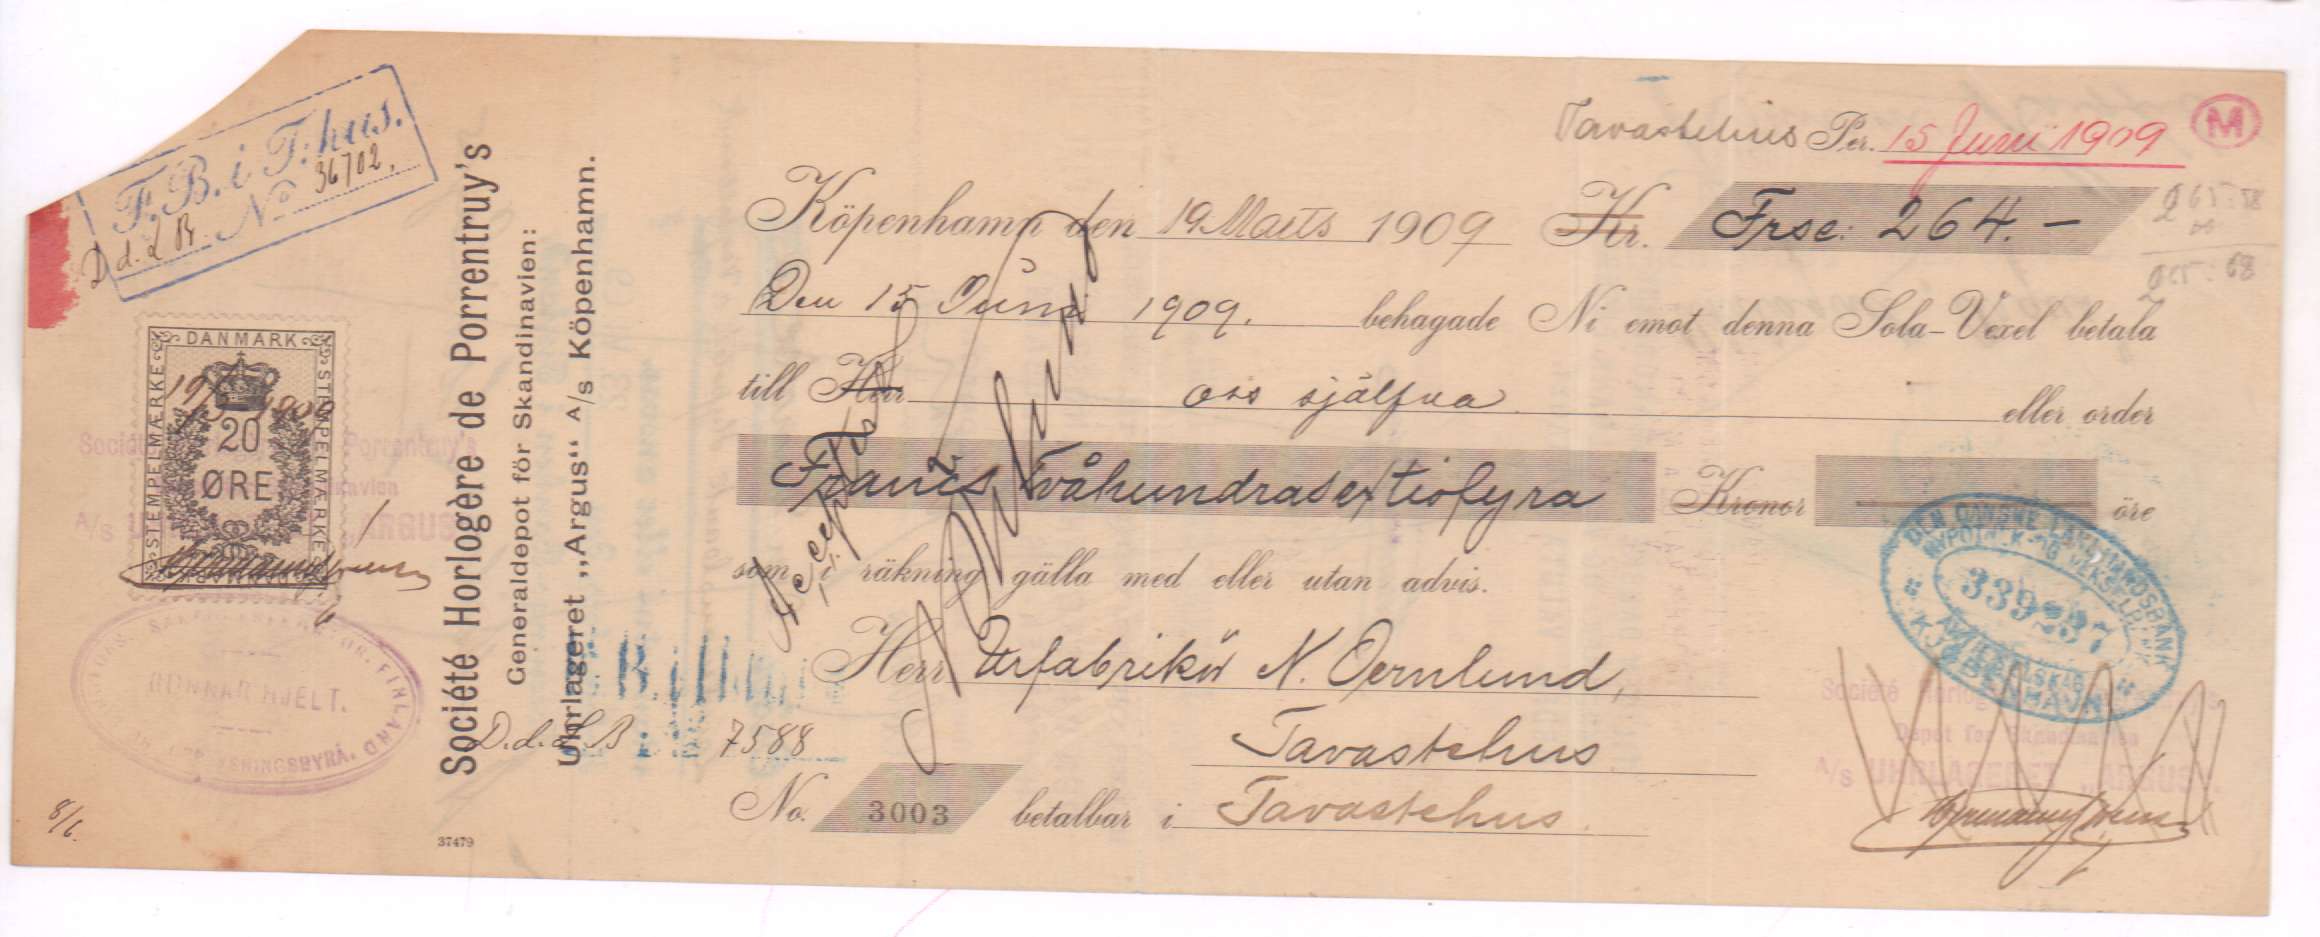 F.B.i T:hus.
D.d.L.B. No 36702.
DANMARK
STEMPELMÆRKE
STEMPELMÆRKE
19/3 1909
20
ØRE
Société Horlogère de Porrentruy's
A/s UHRLAGERET „ARGUS"
FINLAND
GUNNAR HJELT.
8/6.
Société Horlogère de Porrentruy's
Generaldepot för Skandinavien:
Uhrlageret „Argus" A/s Köpenhamn.
37479
Tavastehus Per. 15 Juni 1909
M
Köpenhamn den 19 Marts 1909 Kr. Frsc: 264.-
Den 15 Juni 1909. behagade Ni emot denna Sola-Vexel betala
till Herr oss själfva eller order
Francs Tvåhundrasextiofyra Kronor öre
som i räkning gälla med eller utan advis.
Accepteras
Herr Urfabrikör N. Oernlund,
D.d.L.B 7588 Tavastehus
No. 3003 betalbar i Tavastehus.
DEN DANSKE LANDMANDSBANK
HYPOTHEK- OG VEKSELBANK
339237
AKTIESELSKAB
KJØBENHAVN
Société Horlogère de Porrentruy's
Depot for Skandinavien
A/s UHRLAGERET „ARGUS".